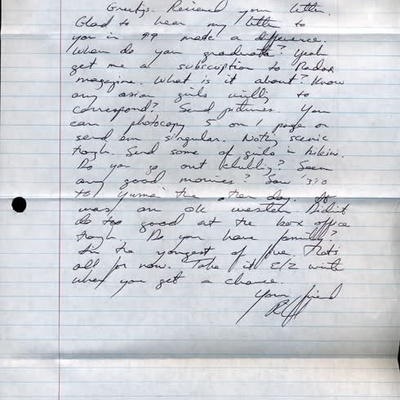 Greetings. Received your letter.
Glad to hear my letter to
you in 99 made a difference.
When do you graduate? Yeah
get me a subscription to Radar
magazine. What is it about? Know
any asian girls willing to
correspond? Send pictures. You
can photocopy 5 on 1 page or
send em singular. Nothing scenic
though. Send some of girls in bikini.
Do you go out clubbing? Seen
any good movies? Saw '3:10
to Yuma' the other day. It
was an ok western. Didn't
do too good at the box office
though. Do you have family?
I'm the youngest of five. That's
all for now. Take it E/Z write
when you get a chance.
Your friend